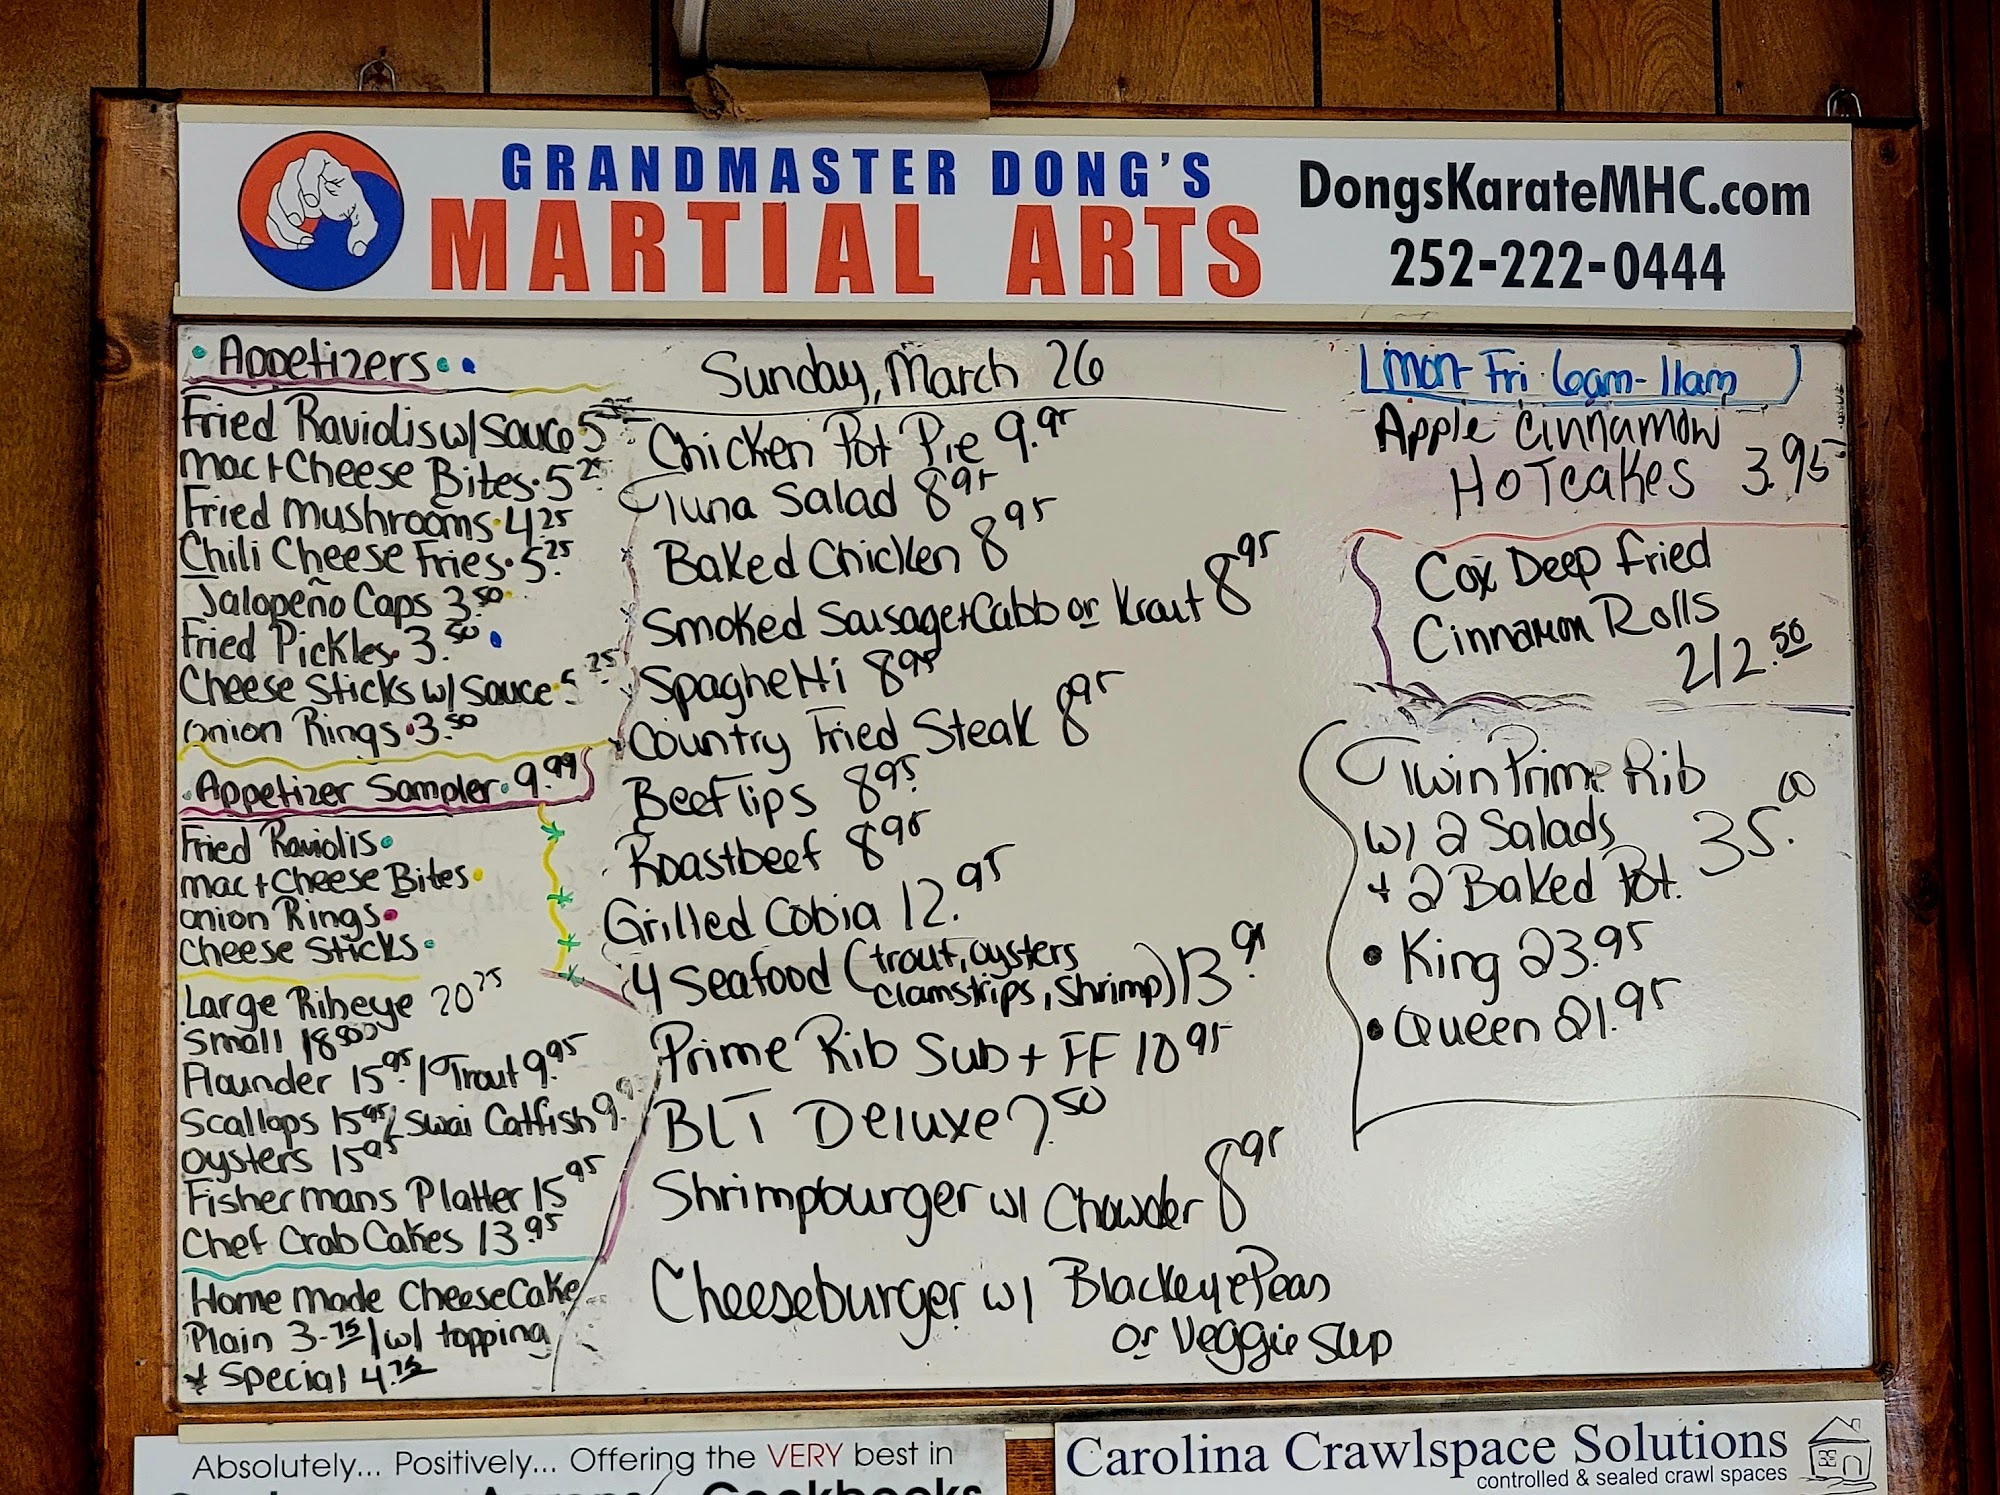 GRANDMASTER DONG'S
MARTIAL ARTS
DongsKarateMHC.com
252-222-0444
Appetizers
Fried Raviolis w/ Sauce 5
Mac + Cheese Bites 5 25
Fried Mushrooms 4 25
Chili Cheese Fries 5 25
Jalopeño Caps 3.50
Fried Pickles 3.50
Cheese Sticks w/ Sauce 5 25
Onion Rings 3.50
Appetizer Sampler 9.99
Fried Raviolis
Mac + Cheese Bites
Onion Rings
Cheese Sticks
Large Ribeye 20 25
Small 18
Flounder 15.95 / Trout 9.95
Scallops 15 95 / Swai Catfish 9.
Oysters 15 95
Fishermans Platter 15 95
Chef Crab Cakes 13.95
Home made CheeseCake
Plain 3.75 / w/ topping
+ Special 4.75
Sunday, March 26
Chicken Pot Pie 9.95
Tuna Salad 8 95
Baked Chicken 8 95
Smoked Sausage + Cabb or Kraut 8 95
Spaghetti 8 95
Country Fried Steak 8 95
Beef Tips 8 95
Roastbeef 8 95
Grilled Cobia 12.95
4 Seafood (trout, oysters
clamstrips, shrimp) 13.95
Prime Rib Sub + FF 10 95
BLT Deluxe 7.50
Shrimpburger w/ Chowder 8 95
Cheeseburger w/ Blackeye Peas
or Veggie Sup
Mon-Fri 6am-11am
Apple Cinnamon
HoTcakes 3.95
Cox Deep Fried
Cinnamon Rolls
2/2.50
Twin Prime Rib
w/ 2 Salads
+ 2 Baked Pot. 35.00
• King 23.95
• Queen 21.95
Absolutely... Positively... Offering the VERY best in
Cookbooks
Carolina Crawlspace Solutions
controlled & sealed crawl spaces